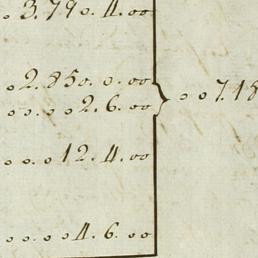 o 3.790. 4. oo
o 2.850. o. oo
o o. o. o 2. 6. oo
o o 7.18
o o. o 12. 4. oo
o o. o. o 4. 6. oo